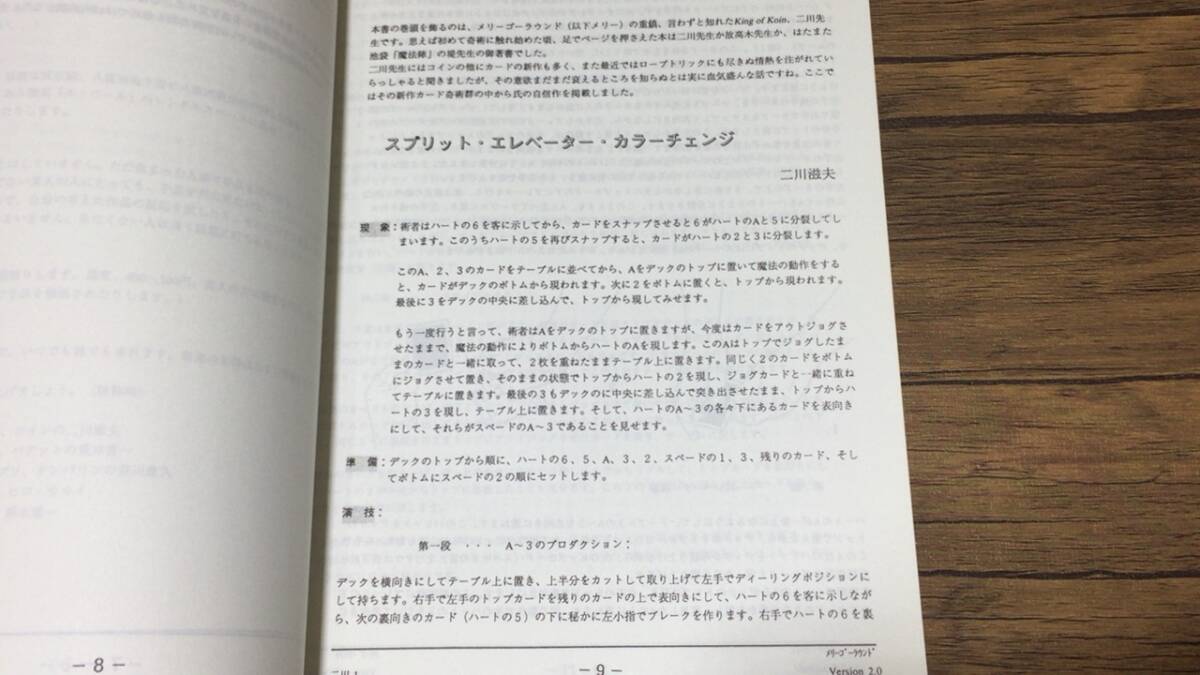 本書の巻頭を飾るのは、メリーゴーラウンド（以下メリー）の重鎮、言わずと知れたKing of Koin、二川先
生です。思えば初めて奇術に触れ始めた頃、足でページを押さえた本は二川先生か故高木先生か、はたまた
池袋「魔法録」の堤先生の御著書でした。
二川先生にはコインの他にカードの新作も多く、また最近ではロープトリックにも尽きぬ情熱を注がれてい
らっしゃると聞きましたが、その意欲まだまだ衰えるところを知らぬとは実に血気盛んな話ですね。ここで
はその新作カード奇術群の中から氏の自信作を掲載しました。
スプリット・エレベーター・カラーチェンジ
二川滋夫
現　象：術者はハートの６を客に示してから、カードをスナップさせると６がハートのAと５に分裂してし
まいます。このうちハートの５を再びスナップすると、カードがハートの２と３に分裂します。
このA、２、３のカードをテーブルに並べてから、Aをデックのトップに置いて魔法の動作をする
と、カードがデックのボトムから現われます。次に２をボトムに置くと、トップから現われます。
最後に３をデックの中央に差し込んで、トップから現してみせます。
もう一度行うと言って、術者はAをデックのトップに置きますが、今度はカードをアウトジョグさ
せたままで、魔法の動作によりボトムからハートのAを現します。このAはトップでジョグしたま
まのカードと一緒に取って、２枚を重ねたままテーブル上に置きます。同じく２のカードをボトム
にジョグさせて置き、そのままの状態でトップからハートの２を現し、ジョグカードと一緒に重ね
てテーブルに置きます。最後の３もデックのに中央に差し込んで突き出させたまま、トップからハ
ートの３を現し、テーブル上に置きます。そして、ハートのA～３の各々下にあるカードを表向き
にして、それらがスペードのA～３であることを見せます。
準　備：デックのトップから順に、ハートの６、５、A、３、２、スペードの１、３、残りのカード、そし
てボトムにスペードの２の順にセットします。
演　技：
第一段　・・・　A～３のプロダクション：
デックを横向きにしてテーブル上に置き、上半分をカットして取り上げて左手でディーリングポジションに
して持ちます。右手で左手のトップカードを残りのカードの上で表向きにして、ハートの６を客に示しなが
ら、次の裏向きのカード（ハートの５）の下に秘かに左小指でブレークを作ります。右手でハートの６を裏
－８－
二川１
－９－
ﾒﾘｰｺﾞｰﾗｳﾝﾄﾞ
Version 2.0